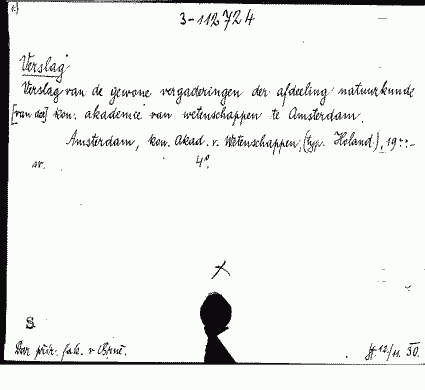 3-112724
Verslag
Verslag van de gewone vergaderingen der afdeeling natuurkunde
[van der] kon. akademie van wetenschappen te Amsterdam.
Amsterdam, kon. Akad. v. Wetenschappen, (typ. Holland.), 19··-
sv. 4°.
S
Dar přír. fak. v Brně. 12/11. 30.